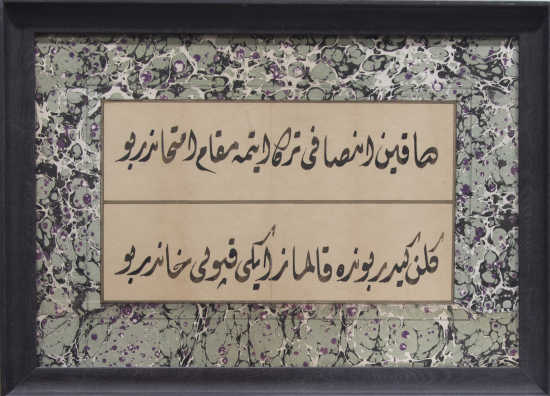 صاقين انصافى ترك ايتمه مقام امتحاندر بو
كلن كيدر بونده قالماز ايكى قپولى خاندر بو